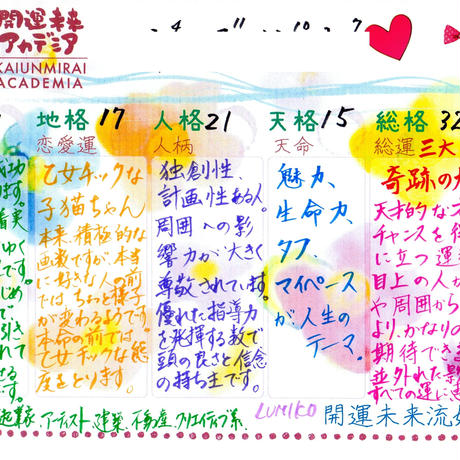 開運未来
アカデミア
KAIUNMIRAI
ACADEMIA
4 11 10 7
地格 17
恋愛運
乙女チックな
子猫ちゃん
本来、積極的な
画数ですが、本当
に好きな人の前
では、ちょっと様子
が変わるようです。
本命の前では、
乙女チックな態
度をとります。
人格 21
人柄
独創性、
計画性ある人。
周囲への影
響力が大きく
尊敬されています。
優れた指導力
を発揮する数で
頭の良さと信念
の持ち主です。
天格 15
天命
魅力、
生命力、
タフ、
マイペース
が人生の
テーマ。
総格 32
総運 三大
奇跡の
天才的な
チャンスを
に立つ運
目上の人か
や周囲から
より、かなりの
期待でき
並外れた影
すべての運に恵
アーティスト、建築、不動産、クリエイティブ系、
LUMIKO
開運未来流